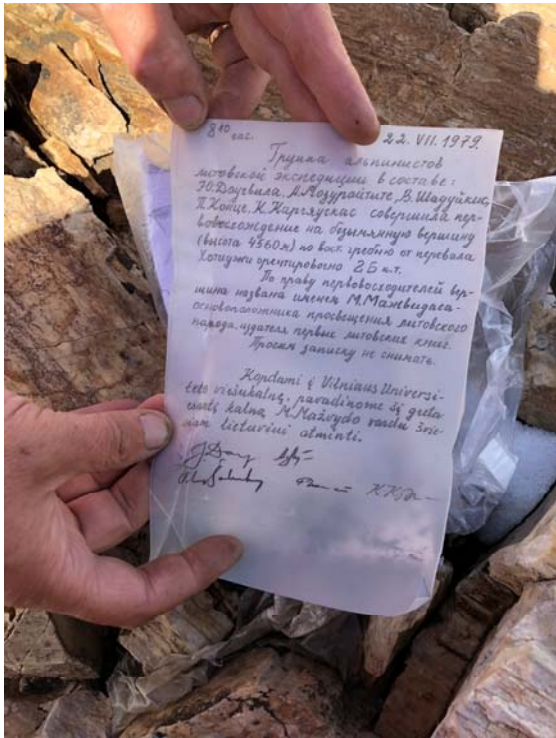 8¹⁰ час. 22. VII. 1979.
Группа альпинистов
литовской экспедиции в составе:
Ю.Даугвила, А.Мозурайтите, В.Шадуйкис,
П.Концe, К.Каргяускас совершила пер-
вовосхождение на безымянную вершину
(высота 4560м) по вост. гребню от перевала
ориентировочно 2Б к.т.
По праву первовосходителей вер-
шина названа именем М.Мажвидаса-
основоположника просвещения литовского
народа, издателя первых литовских книг.
Просим записку не снимать.
Kopdami į Vilniaus Universi-
teto viršukalnę, pavadinome šį
kalną M.Mažvydo vardu švie-
lietuvini atminti.